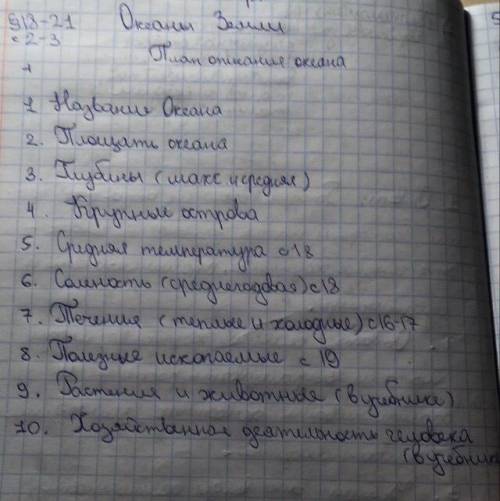 §18-21 Океаны Земли
с 2-3
План описания океана
1 Название Океана
2. Площать океана
3. Глубины (макс и средняя)
4. Крупные острова
5. Средняя температура с 18
6. Соленость (среднегодовая) с 18
7. Течения (теплые и холодные) с 16-17
8. Полезные ископаемые с 19
9. Растения и животные (в учебнике)
10. Хозяйственная деятельность человека
(в учебнике